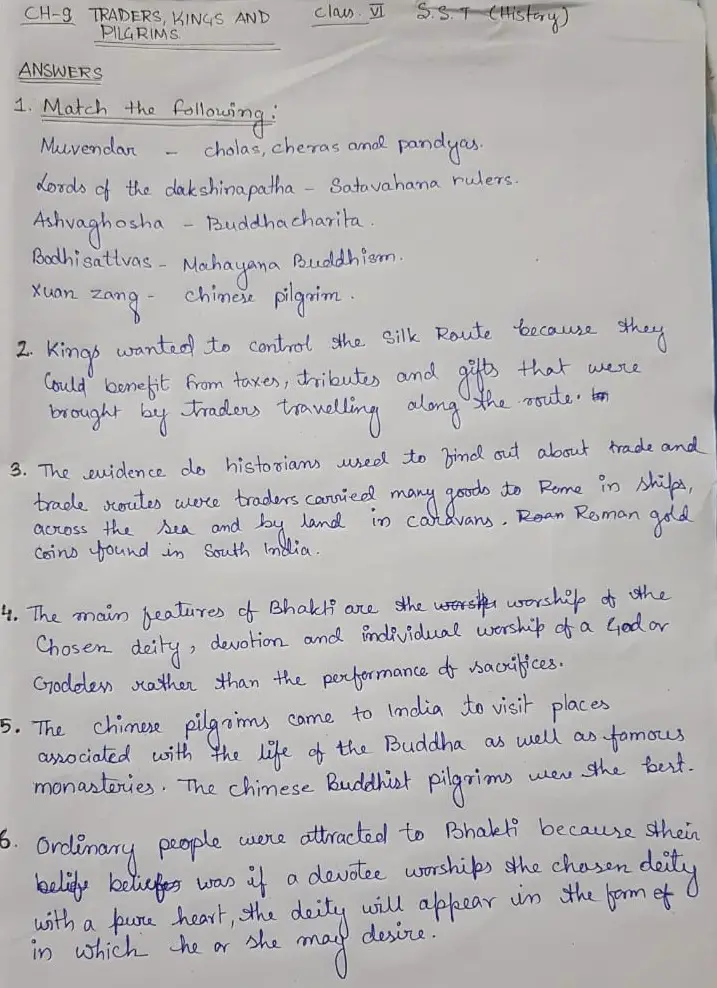 CH-9 TRADERS, KINGS AND PILGRIMS Class. VI S.S.T (History)
ANSWERS
1. Match the following:
Muvendar - cholas, cheras and pandyas.
Lords of the dakshinapatha - Satavahana rulers.
Ashvaghosha - Buddhacharita.
Bodhisattvas - Mahayana Buddhism.
Xuan zang - chinese pilgrim.
2. Kings wanted to control the Silk Route because they
Could benefit from taxes, tributes and gifts that were
brought by traders travelling along the route.
3. The evidence do historians used to find out about trade and
trade routes were traders carried many goods to Rome in ships,
across the sea and by land in caravans. Roan Roman gold
coins found in South India.
4. The main features of Bhakti are the worship of the
Chosen deity, devotion and individual worship of a God or
Goddess rather than the performance of sacrifices.
5. The chinese pilgrims came to India to visit places
associated with the life of the Buddha as well as famous
monasteries. The chinese Buddhist pilgrims were the best.
6. Ordinary people were attracted to Bhakti because their
was if a devotee worships the chosen deity
with a pure heart, the deity will appear in the form of
in which he or she may desire.